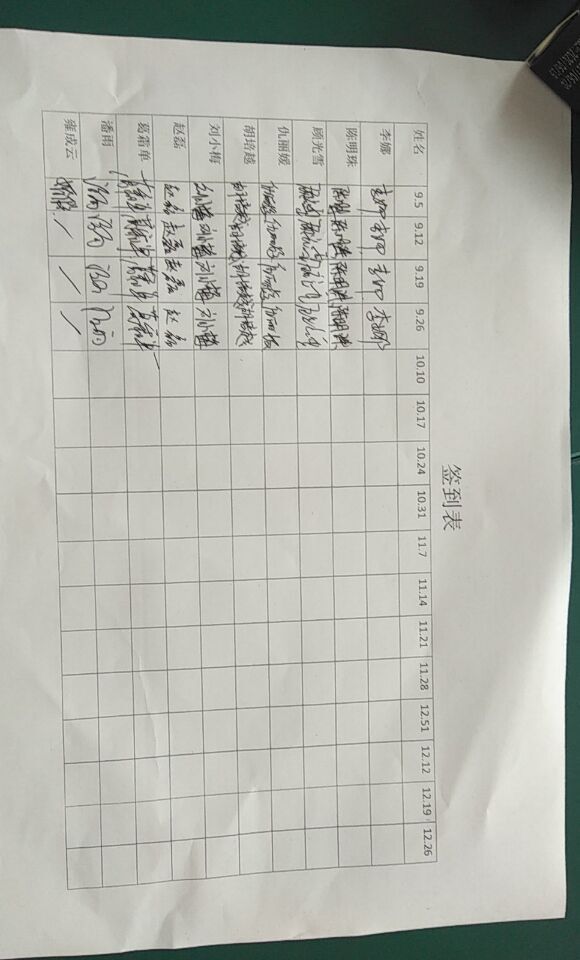 签到表
姓名 9.5 9.12 9.19 9.26 10.10 10.17 10.24 10.31 11.7 11.14 11.21 11.28 12.51 12.12 12.19 12.26
李娜 李娜 李娜 李娜 李娜
陈明珠 陈明珠 陈明珠 陈明珠 陈明珠
顾光雪 顾光雪 顾光雪 顾光雪 顾光雪
仇丽媛 仇丽媛 仇丽媛 仇丽媛 仇丽媛
胡培越 胡培越 胡培越 胡培越 胡培越
刘小梅 刘小梅 刘小梅 刘小梅 刘小梅
赵磊 赵磊 赵磊 赵磊 赵磊
葛霜单 葛霜单 葛霜单 葛霜单 葛霜单
潘雨 潘雨 潘雨 潘雨 潘雨
雍成云 / / /